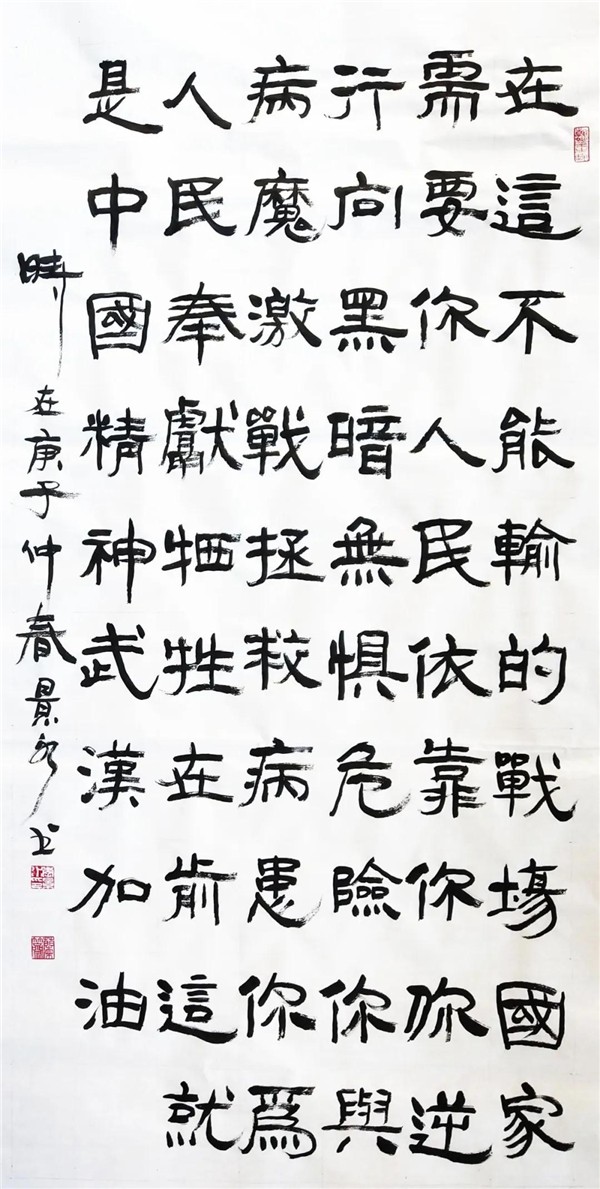 在這不能輸的戰場國家
需要你人民依靠你你逆
行向黑暗無懼危險你與
病魔激戰拯救病患你爲
人民奉獻牺牲在前這就
是中國精神武漢加油
時在庚子仲春景书